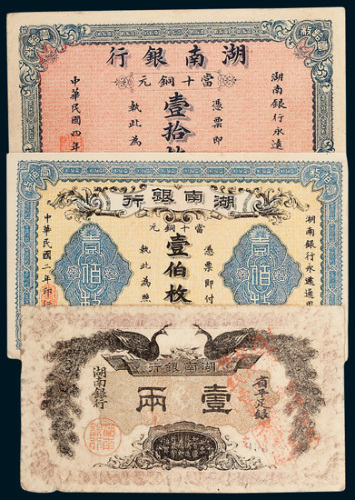 行銀南湖
元銅十當
湖南銀行永遠
憑票即
壹拾枚
執此為
中華民國四年
行銀南湖
元銅十當
湖南銀行永遠通用
憑票即付
壹伯枚
執此為照
中華民國二年印行
壹佰枚
壹佰枚
行銀南湖
省平足銀
壹兩
湖南銀行